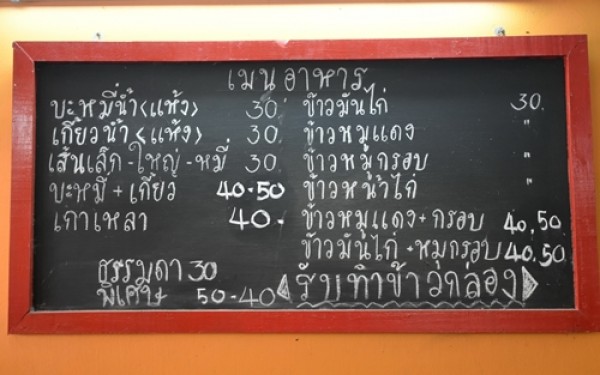 เมนูอาหาร
บะหมี่น้ำ<แห้ง> 30.
เกี๊ยวน้ำ<แห้ง> 30.
เส้นเล็ก-ใหญ่-หมี่ 30
บะหมี่+เกี๊ยว 40-50
เกาเหลา 40-
ธรรมดา 30
พิเศษ 50-40
ข้าวมันไก่ 30.
ข้าวหมูแดง "
ข้าวหมูกรอบ "
ข้าวหน้าไก่ "
ข้าวหมูแดง+กรอบ 40,50
ข้าวมันไก่+หมูกรอบ 40,50
รับทำข้าวกล่อง